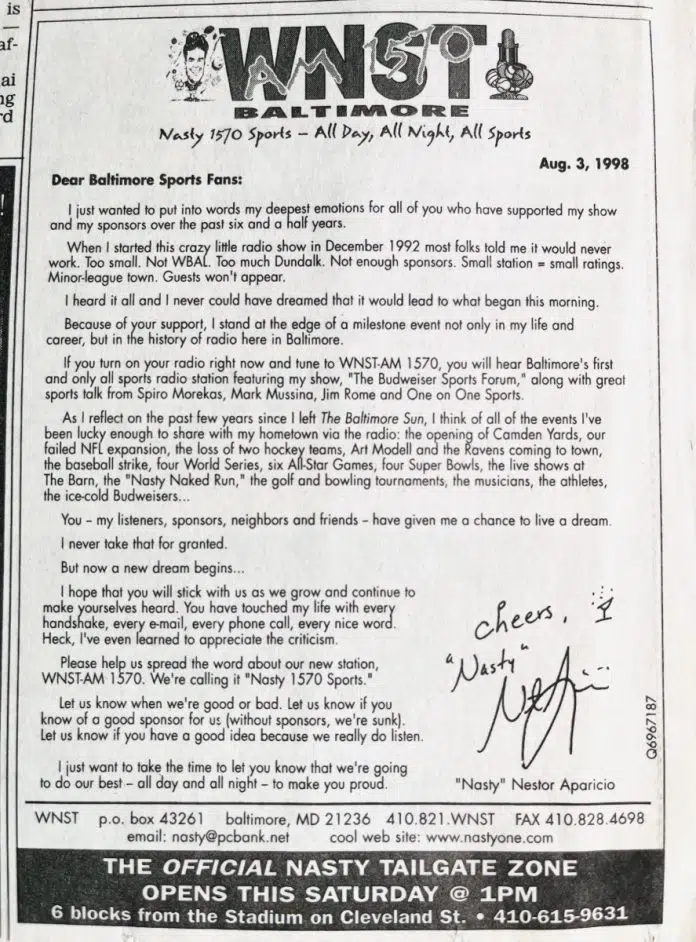 is
af-
ai
ng
rd
!
WNST
AM 1570
BALTIMORE
Nasty 1570 Sports – All Day, All Night, All Sports
Aug. 3, 1998
Dear Baltimore Sports Fans:
I just wanted to put into words my deepest emotions for all of you who have supported my show
and my sponsors over the past six and a half years.
When I started this crazy little radio show in December 1992 most folks told me it would never
work. Too small. Not WBAL. Too much Dundalk. Not enough sponsors. Small station = small ratings.
Minor-league town. Guests won't appear.
I heard it all and I never could have dreamed that it would lead to what began this morning.
Because of your support, I stand at the edge of a milestone event not only in my life and
career, but in the history of radio here in Baltimore.
If you turn on your radio right now and tune to WNST-AM 1570, you will hear Baltimore's first
and only all sports radio station featuring my show, "The Budweiser Sports Forum," along with great
sports talk from Spiro Morekas, Mark Mussina, Jim Rome and One on One Sports.
As I reflect on the past few years since I left The Baltimore Sun, I think of all of the events I've
been lucky enough to share with my hometown via the radio: the opening of Camden Yards, our
failed NFL expansion, the loss of two hockey teams, Art Modell and the Ravens coming to town,
the baseball strike, four World Series, six All-Star Games, four Super Bowls, the live shows at
The Barn, the "Nasty Naked Run," the golf and bowling tournaments, the musicians, the athletes,
the ice-cold Budweisers...
You – my listeners, sponsors, neighbors and friends – have given me a chance to live a dream.
I never take that for granted.
But now a new dream begins...
I hope that you will stick with us as we grow and continue to
make yourselves heard. You have touched my life with every
handshake, every e-mail, every phone call, every nice word.
Heck, I've even learned to appreciate the criticism.
Please help us spread the word about our new station,
WNST-AM 1570. We're calling it "Nasty 1570 Sports."
Let us know when we're good or bad. Let us know if you
know of a good sponsor for us (without sponsors, we're sunk).
Let us know if you have a good idea because we really do listen.
I just want to take the time to let you know that we're going
to do our best – all day and all night – to make you proud.
cheers,
"Nasty"
"Nasty" Nestor Aparicio
Q6967187
WNST p.o. box 43261 baltimore, MD 21236 410.821.WNST FAX 410.828.4698
email: nasty@pcbank.net cool web site: www.nastyone.com
THE OFFICIAL NASTY TAILGATE ZONE
OPENS THIS SATURDAY @ 1PM
6 blocks from the Stadium on Cleveland St. • 410-615-9631